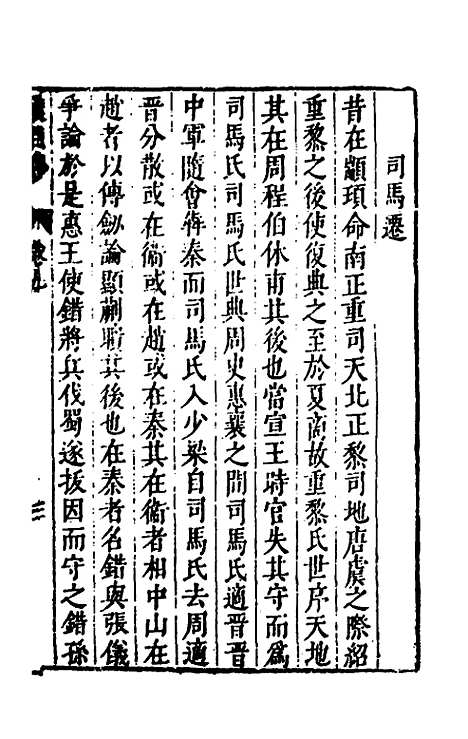 司馬遷
昔在顓頊命南正重司天北正黎司地唐虞之際紹
重黎之後使復典之至於夏商故重黎氏世序天地
其在周程伯休甫其後也當宣王時官失其守而為
司馬氏司馬氏世典周史惠襄之間司馬氏適晉晉
中軍隨會奔秦而司馬氏入少梁自司馬氏去周適
晉分散或在衛或在趙或在秦其在衛者相中山在
趙者以傳劍論顯蒯聵其後也在秦者名錯與張儀
爭論於是惠王使錯將兵伐蜀遂拔因而守之錯孫
三